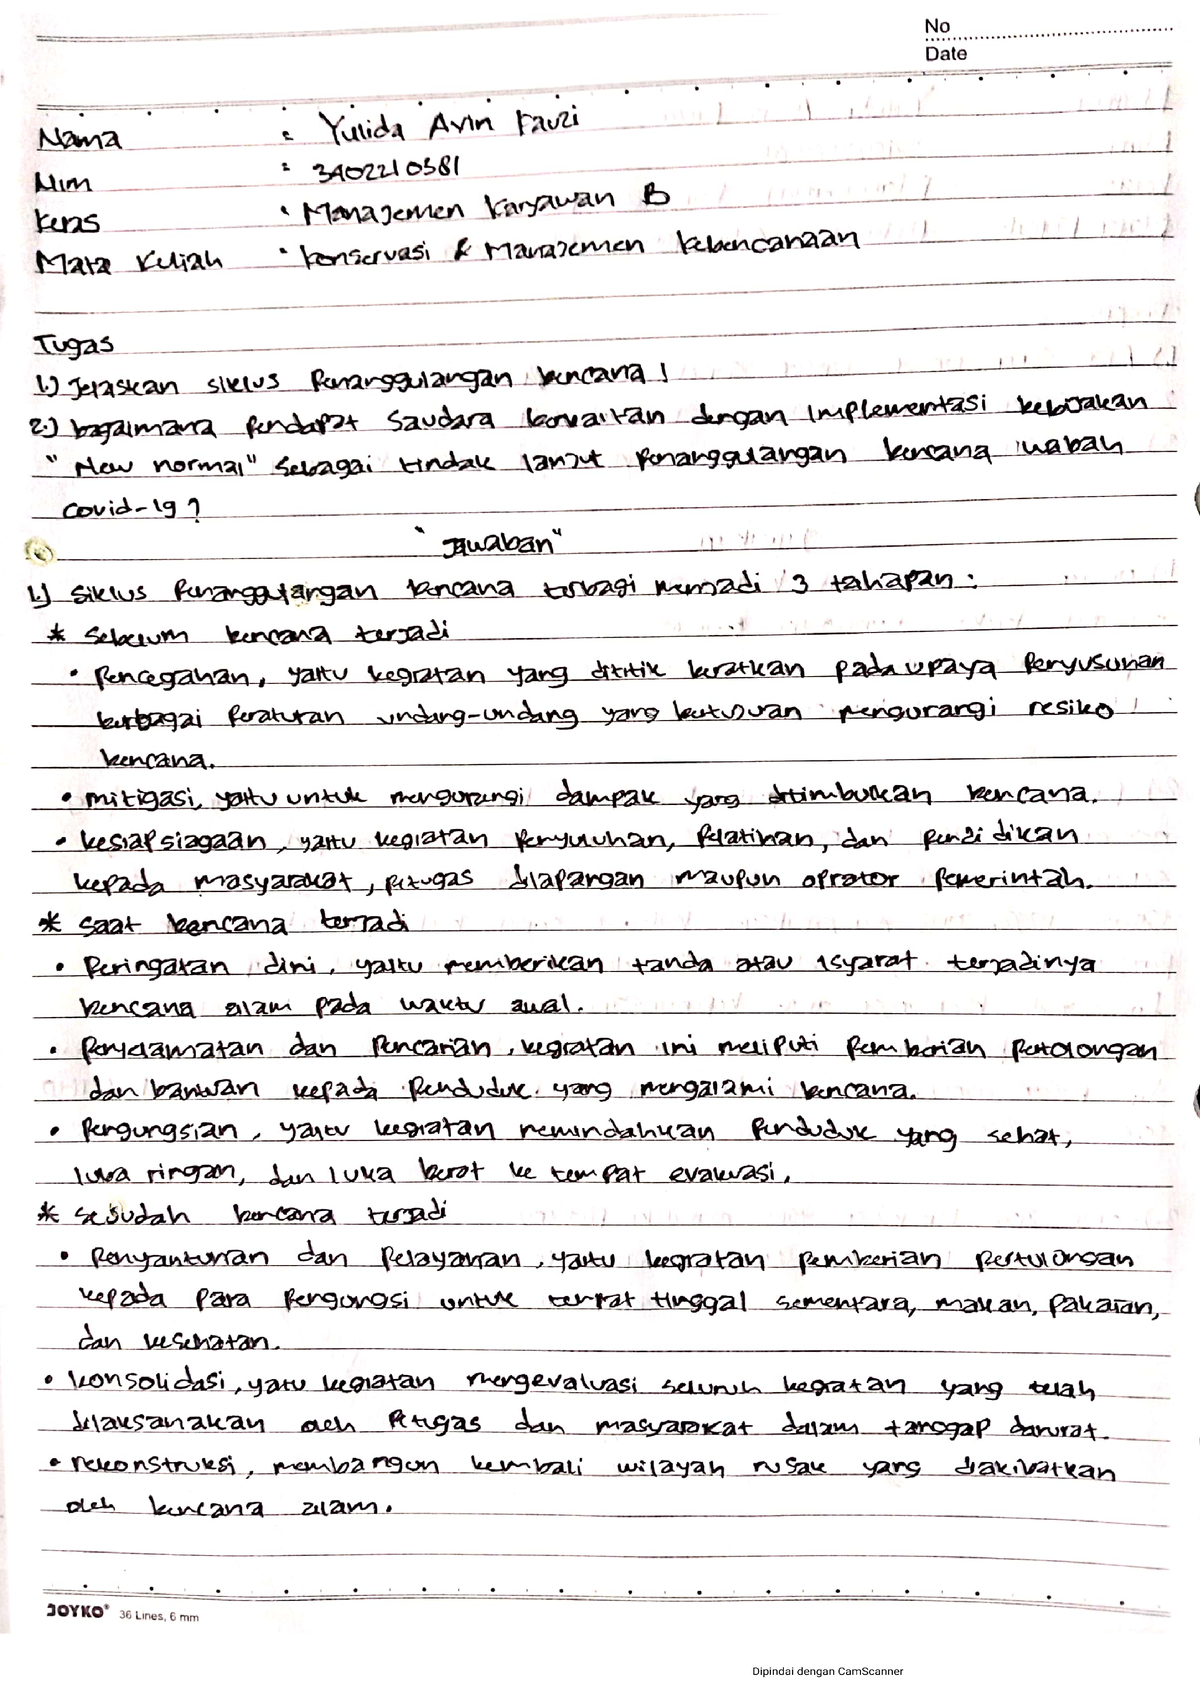 No
Date
Nama : Yulida Avin Fauzi
Nim : 3402210581
Kelas : Manajemen Karyawan B
Mata Kuliah : Konservasi & Manajemen kebencanaan
Tugas
1.) Jelaskan siklus Penanggulangan bencana!
2.) bagaimana Pendapat Saudara berkaitan dengan Implementasi kebijakan
"New normal" sebagai tindak lanjut Penanggulangan bencana wabah
covid-19?
"Jawaban"
1.) Siklus Penanggulangan bencana terbagi menjadi 3 tahapan:
* Sebelum bencana terjadi
• Pencegahan, yaitu kegiatan yang dititik beratkan pada upaya Penyusunan
berbagai Peraturan undang-undang yang bertujuan mengurangi resiko
bencana.
• mitigasi, yaitu untuk mengurangi dampak yang ditimbulkan bencana.
• kesiapsiagaan, yaitu kegiatan Penyuluhan, Pelatihan, dan Pendidikan
kepada masyarakat, petugas dilapangan maupun oprator Pemerintah.
* saat bencana terjadi
• Peringatan dini, yaitu memberikan tanda atau isyarat terjadinya
bencana alam pada waktu awal.
• Penyelamatan dan Pencarian, kegiatan ini meliputi Pemberian Pertolongan
dan bantuan kepada Penduduk yang mengalami bencana.
• Pengungsian, yaitu kegiatan memindahkan Penduduk yang sehat,
luka ringan, dan luka berat ke tempat evakuasi.
* sesudah bencana terjadi
• Penyantunan dan Pelayanan, yaitu kegiatan pemberian pertolongan
kepada para Pengungsi untuk tempat tinggal sementara, makan, pakaian,
dan kesehatan.
• konsolidasi, yatu kegiatan mengevaluasi seluruh kegiatan yang telah
dilaksanakan oleh Petugas dan masyarakat dalam tanggap darurat.
• rekonstruksi, membangun kembali wilayah rusak yang diakibatkan
oleh bencana alam.
JOYKO® 36 Lines, 6 mm
Dipindai dengan CamScanner